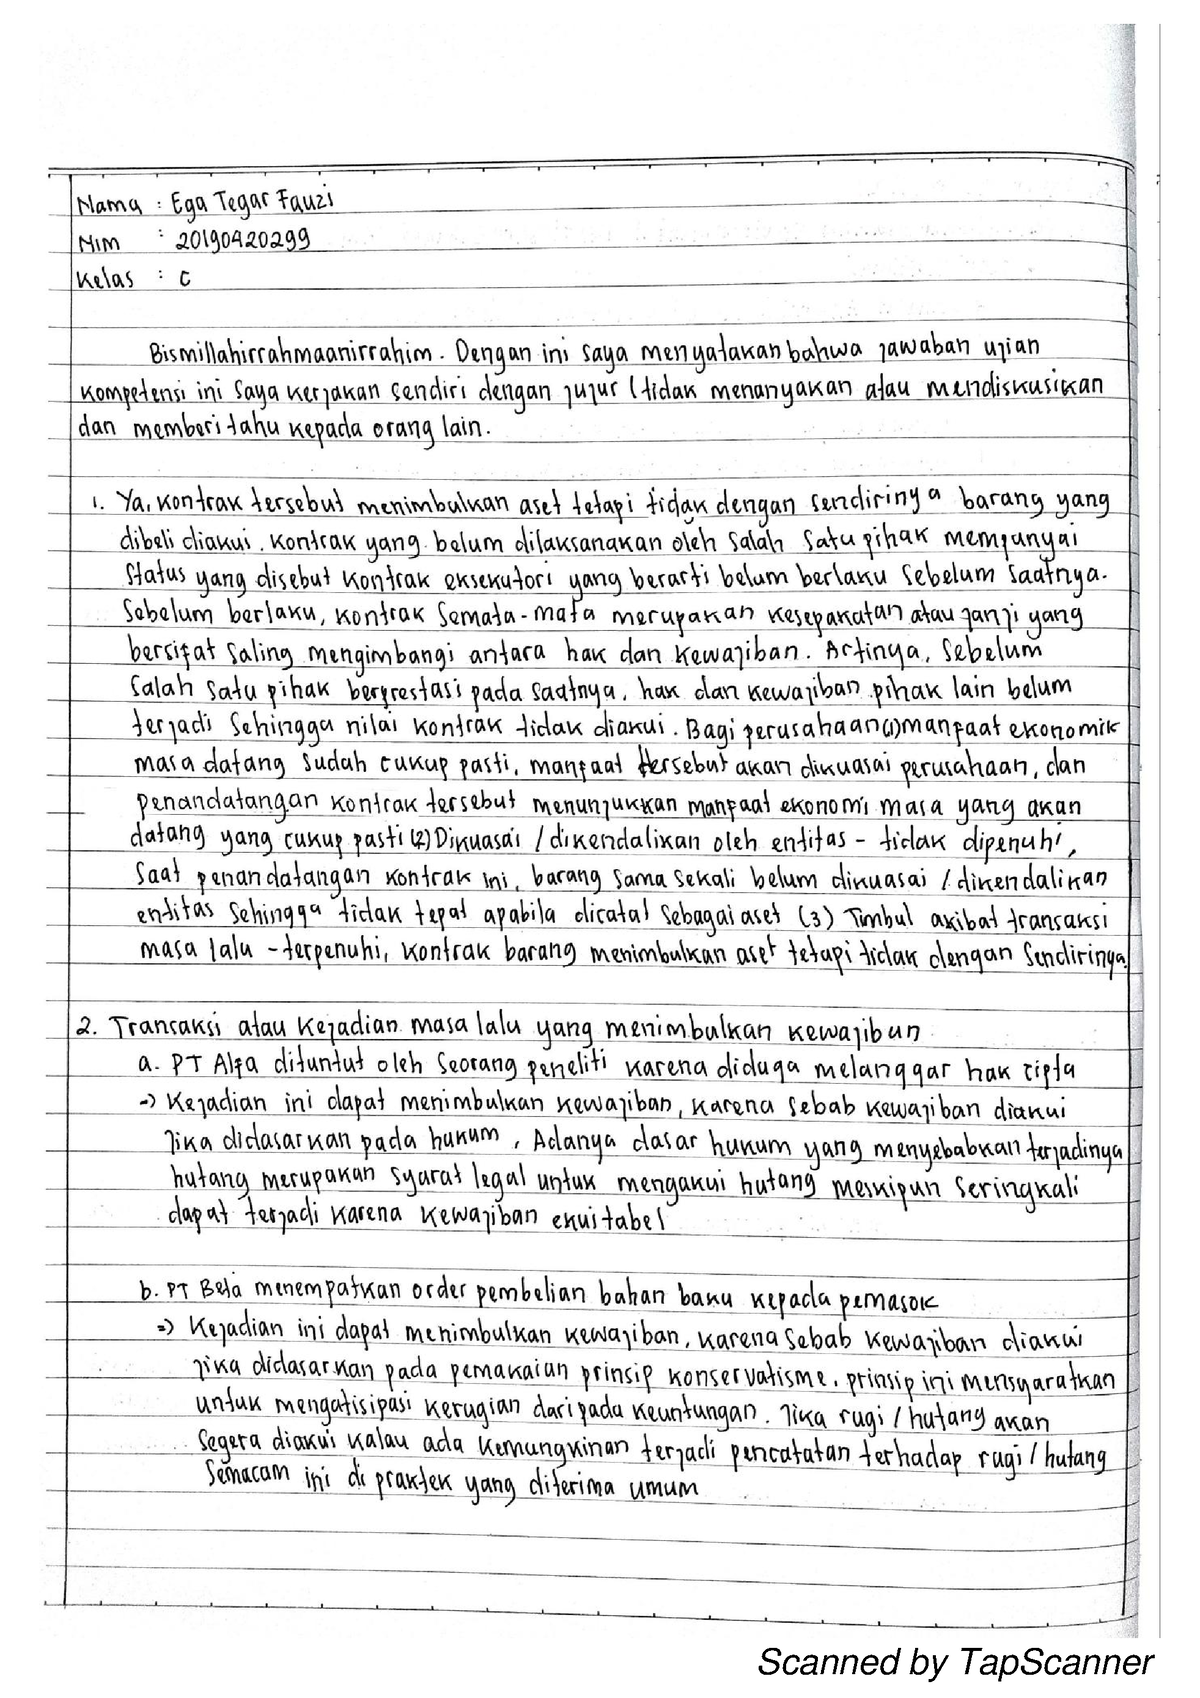 Nama : Ega Tegar Fauzi
Nim : 20190420299
Kelas : C
Bismillahirrahmaanirrahim. Dengan ini saya menyatakan bahwa jawaban ujian
kompetensi ini saya kerjakan sendiri dengan jujur (tidak menanyakan atau mendiskusikan
dan memberitahu kepada orang lain.
1. Ya, kontrak tersebut menimbulkan aset tetapi tidak dengan sendirinya barang yang
dibeli diakui. Kontrak yang belum dilaksanakan oleh salah satu pihak mempunyai
status yang disebut kontrak eksekutori yang berarti belum berlaku sebelum saatnya.
Sebelum berlaku, kontrak semata-mata merupakan kesepakatan atau janji yang
bersifat saling mengimbangi antara hak dan kewajiban. Artinya, sebelum
salah satu pihak berprestasi pada saatnya, hak dan kewajiban pihak lain belum
terjadi sehingga nilai kontrak tidak diakui. Bagi perusahaan (1) manfaat ekonomik
masa datang sudah cukup pasti, manfaat tersebut akan dikuasai perusahaan, dan
penandatangan kontrak tersebut menunjukkan manfaat ekonomi masa yang akan
datang yang cukup pasti (2) Dikuasai / dikendalikan oleh entitas - tidak dipenuhi,
saat penandatangan kontrak ini, barang sama sekali belum dikuasai / dikendalikan
entitas sehingga tidak tepat apabila dicatat sebagai aset (3) Timbul akibat transaksi
masa lalu - terpenuhi, kontrak barang menimbulkan aset tetapi tidak dengan sendirinya.
2. Transaksi atau Kejadian masa lalu yang menimbulkan kewajiban
a. PT Alfa dituntut oleh seorang peneliti karena diduga melanggar hak cipta
-> Kejadian ini dapat menimbulkan kewajiban, karena sebab kewajiban diakui
jika didasarkan pada hukum, Adanya dasar hukum yang menyebabkan terjadinya
hutang merupakan syarat legal untuk mengakui hutang meskipun seringkali
dapat terjadi karena kewajiban ekuitabel
b. PT Beta menempatkan order pembelian bahan baku kepada pemasok
=> Kejadian ini dapat menimbulkan kewajiban, karena sebab kewajiban diakui
jika didasarkan pada pemakaian prinsip konservatisme. prinsip ini mensyaratkan
untuk mengatisipasi kerugian daripada keuntungan. Jika rugi / hutang akan
segera diakui kalau ada kemungkinan terjadi pencatatan terhadap rugi / hutang
semacam ini di praktek yang diterima umum
Scanned by TapScanner